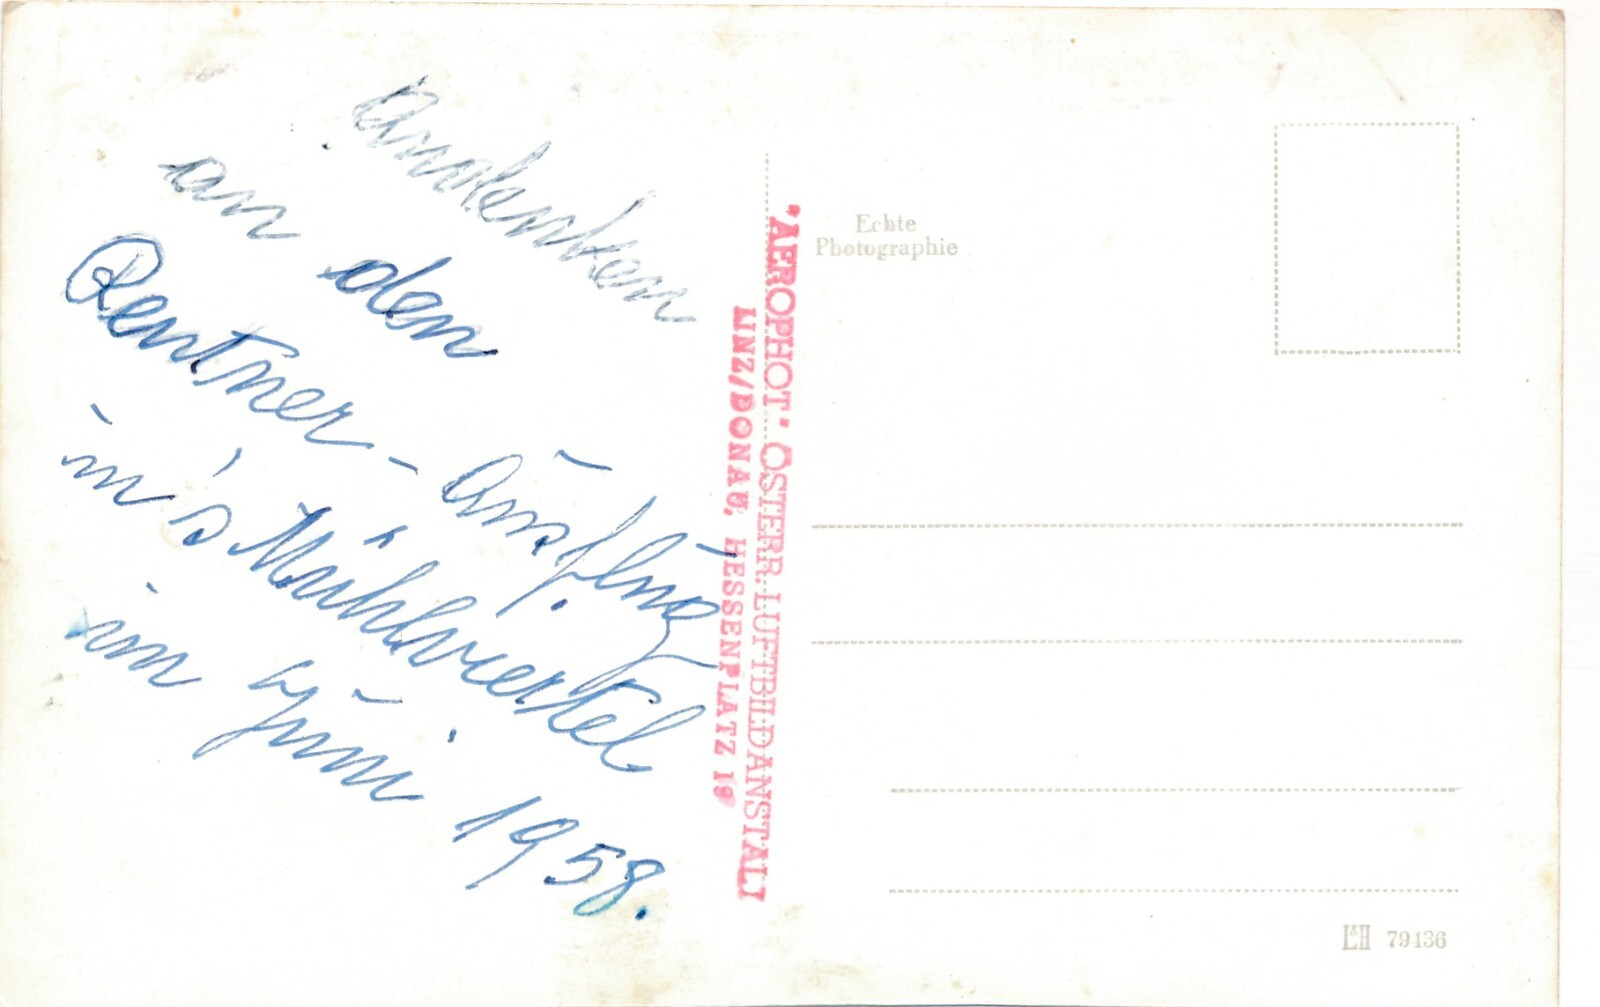 Andenken
an den
Rentner - Ausflug
in's Mühlviertel
im Juni 1958.
"AEROPHOT" ÖSTERR. LUFTBILDANSTALT
LINZ/DONAU, HESSENPLATZ 19
Echte
Photographie
L&H 79136